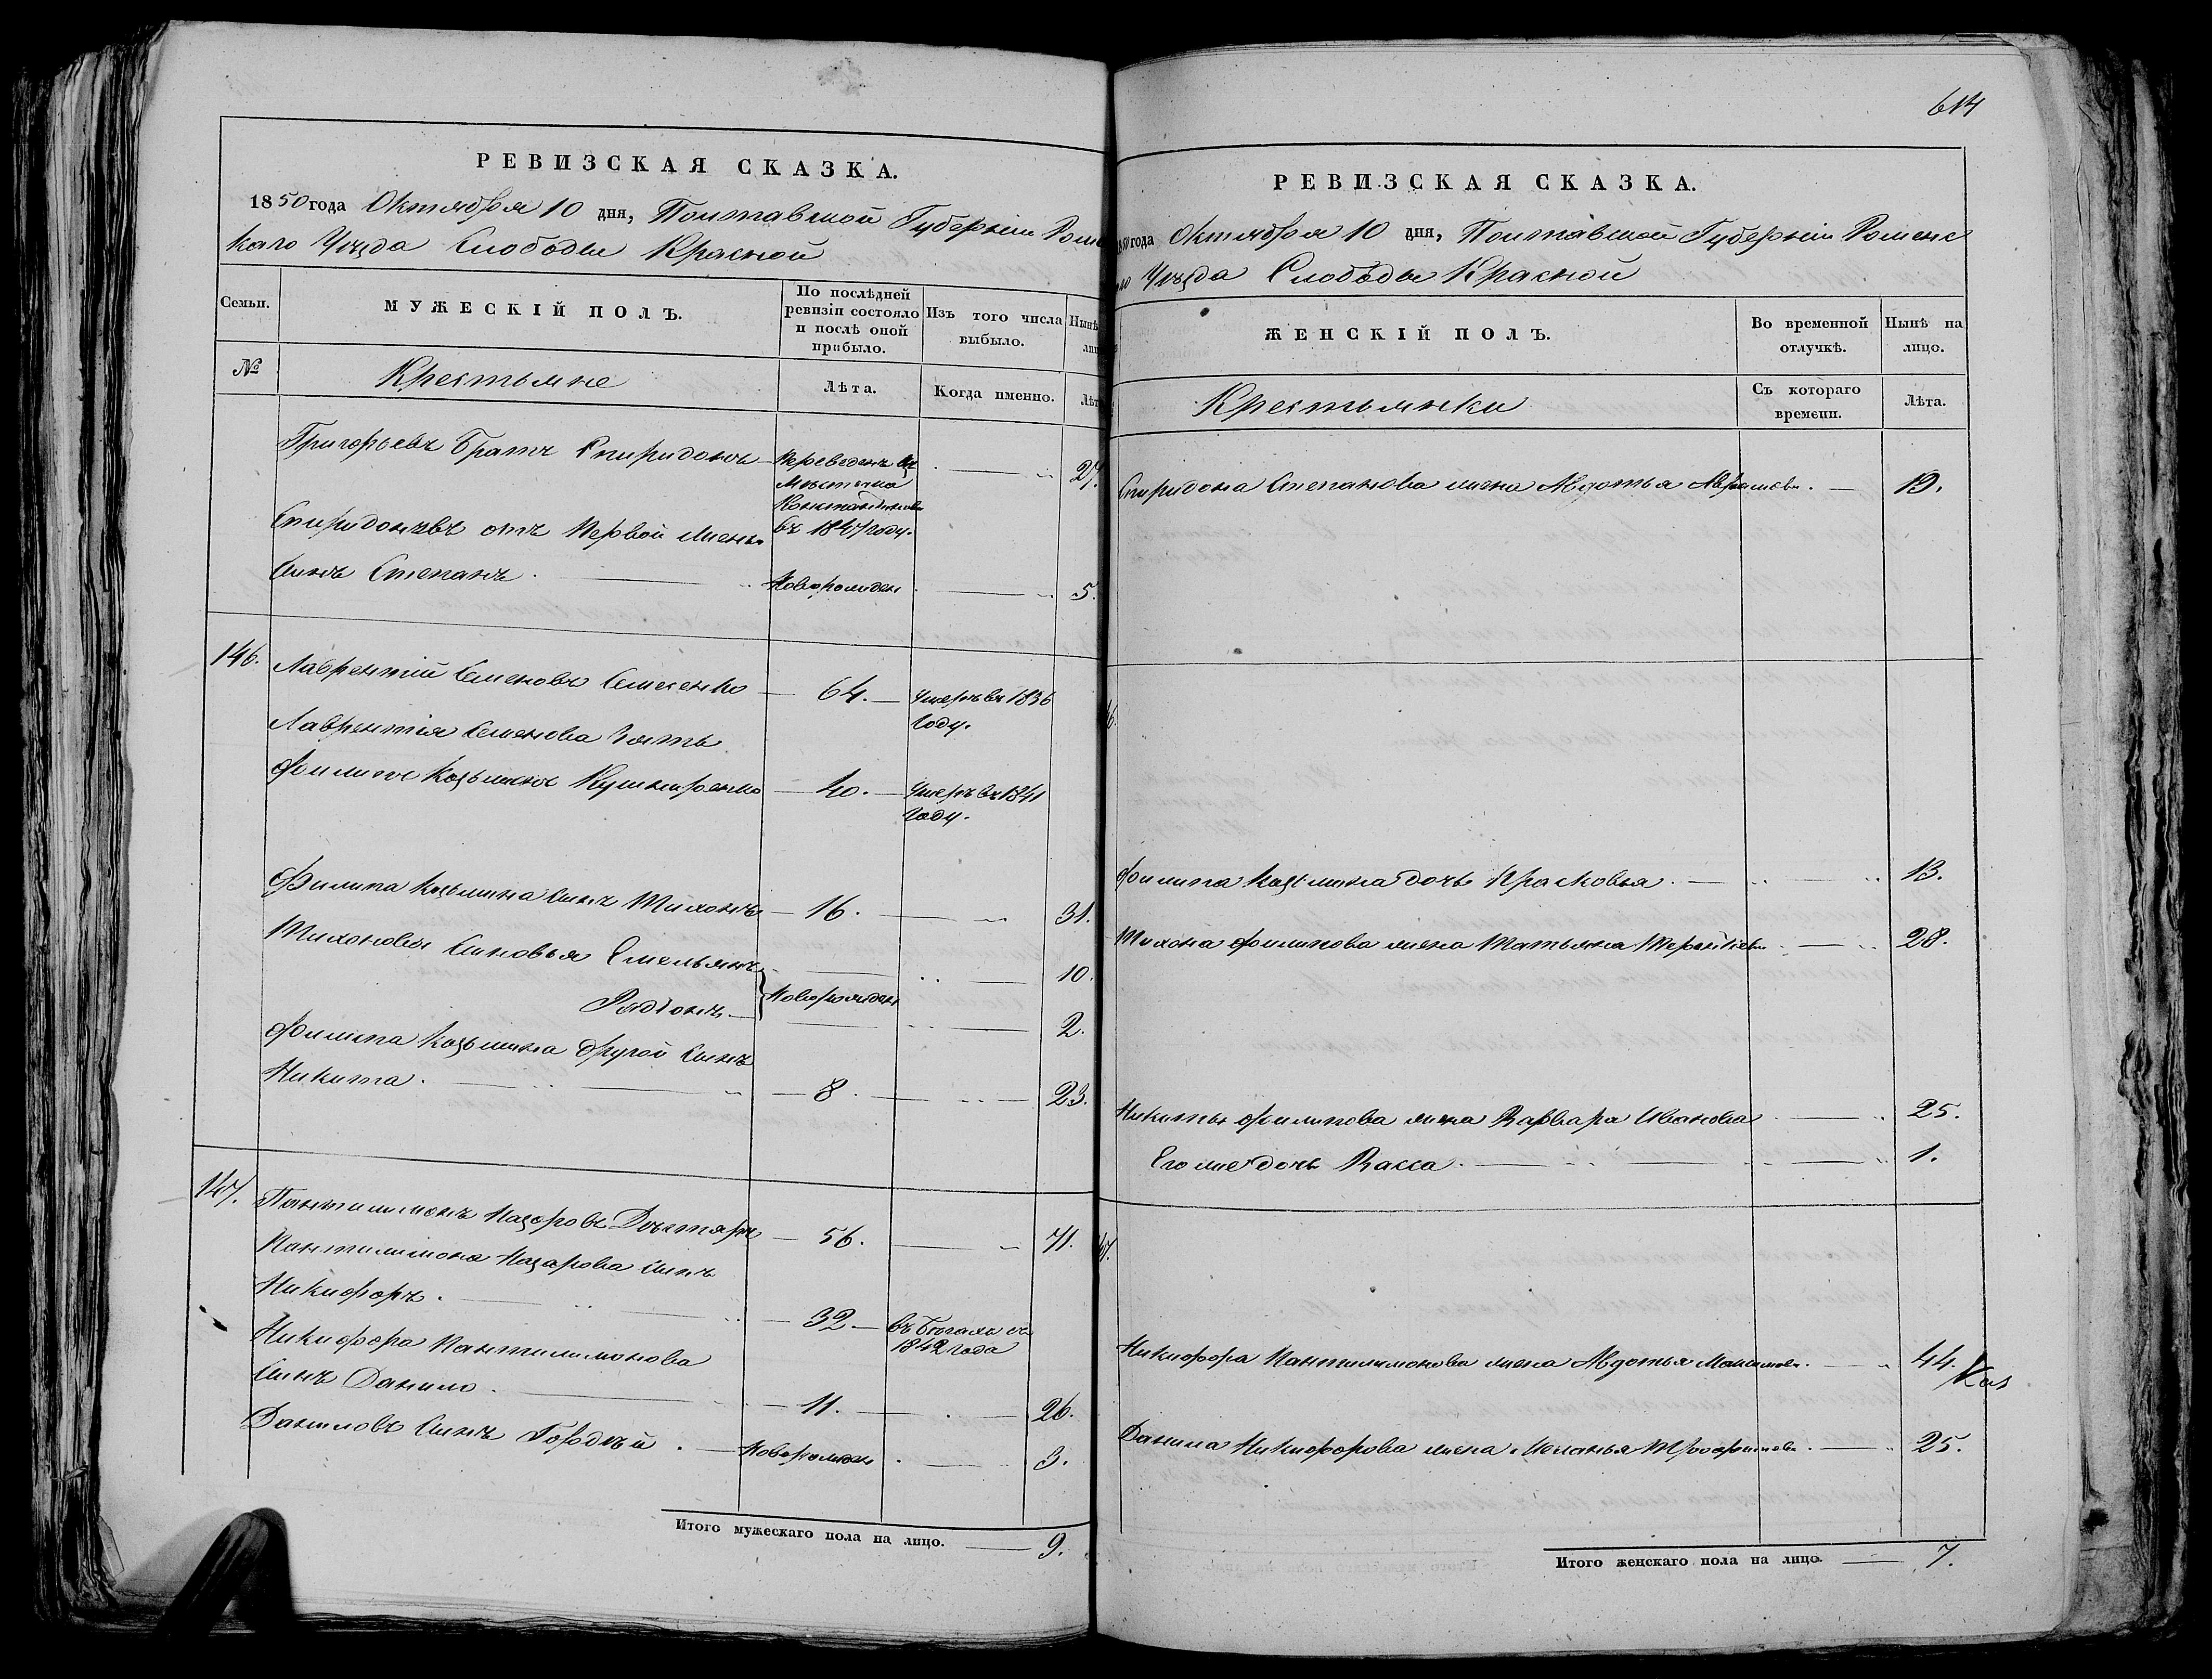 РЕВИЗСКАЯ СКАЗКА.
1850 года Октября 10 дня, Полтавской Губерніи Роменс
каго Уѣзда Слободы Красной
Семьи.
МУЖЕСКІЙ ПОЛЪ.
По послѣдней
ревизіи состояло
и послѣ оной
прибыло.
Изъ того числа
выбыло.
Нынѣ
лиц
№
Крестьяне
Лѣта.
Когда именно.
Лѣт
Григорьевъ братъ Спиридонъ Переведенъ изъ 27.
Мѣстечка
Константинова
въ 1847 году.
Спиридоновъ отъ первой жены
сынъ Степанъ. Новорожден 5.
146. Лаврентій Семеновъ 64. умеръ въ 1836
году.
Лаврентія Семенова зять
Филипъ Козьминъ Кушниренко 40. умеръ въ 1841
году.
Филипа Козьмина сынъ Тихонъ 16. 31.
Тихоновы сыновья Емельянъ 10.
Новорожден
Радіонъ 2.
Филипа Козьмина другой сынъ
Никита. 8. 23.
147. Пантилимонъ Назаровъ Дехтярь 56. 71.
Пантилимона Назарова сынъ
Никифоръ. 32. въ бѣгахъ съ
1842 года
Никифора Пантилимонова
сынъ Данило. 11. 26.
Даниловъ сынъ Гордѣй. Новорожден 3.
Итого мужескаго пола на лицо. 9.
614
РЕВИЗСКАЯ СКАЗКА.
1850 года Октября 10 дня, Полтавской Губерніи Роменс
каго Уѣзда Слободы Красной
ЖЕНСКІЙ ПОЛЪ.
Во временной
отлучкѣ.
Нынѣ на
лицо.
Крестьянки
Съ котораго
времени.
Лѣта.
Спиридона Степанова жена Авдотья 19.
Филипа Козьмина дочь Прасковья. 13.
Тихона Филипова жена Татьяна Терентіева 28.
Никиты Филипова жена Варвара Иванова 25.
Его же дочь Васса. 1.
Никифора Пантилимонова жена Авдотья Максимова. 44.
Данила Никифорова жена Меланья Трофимова. 25.
Итого женскаго пола на лицо. 7.